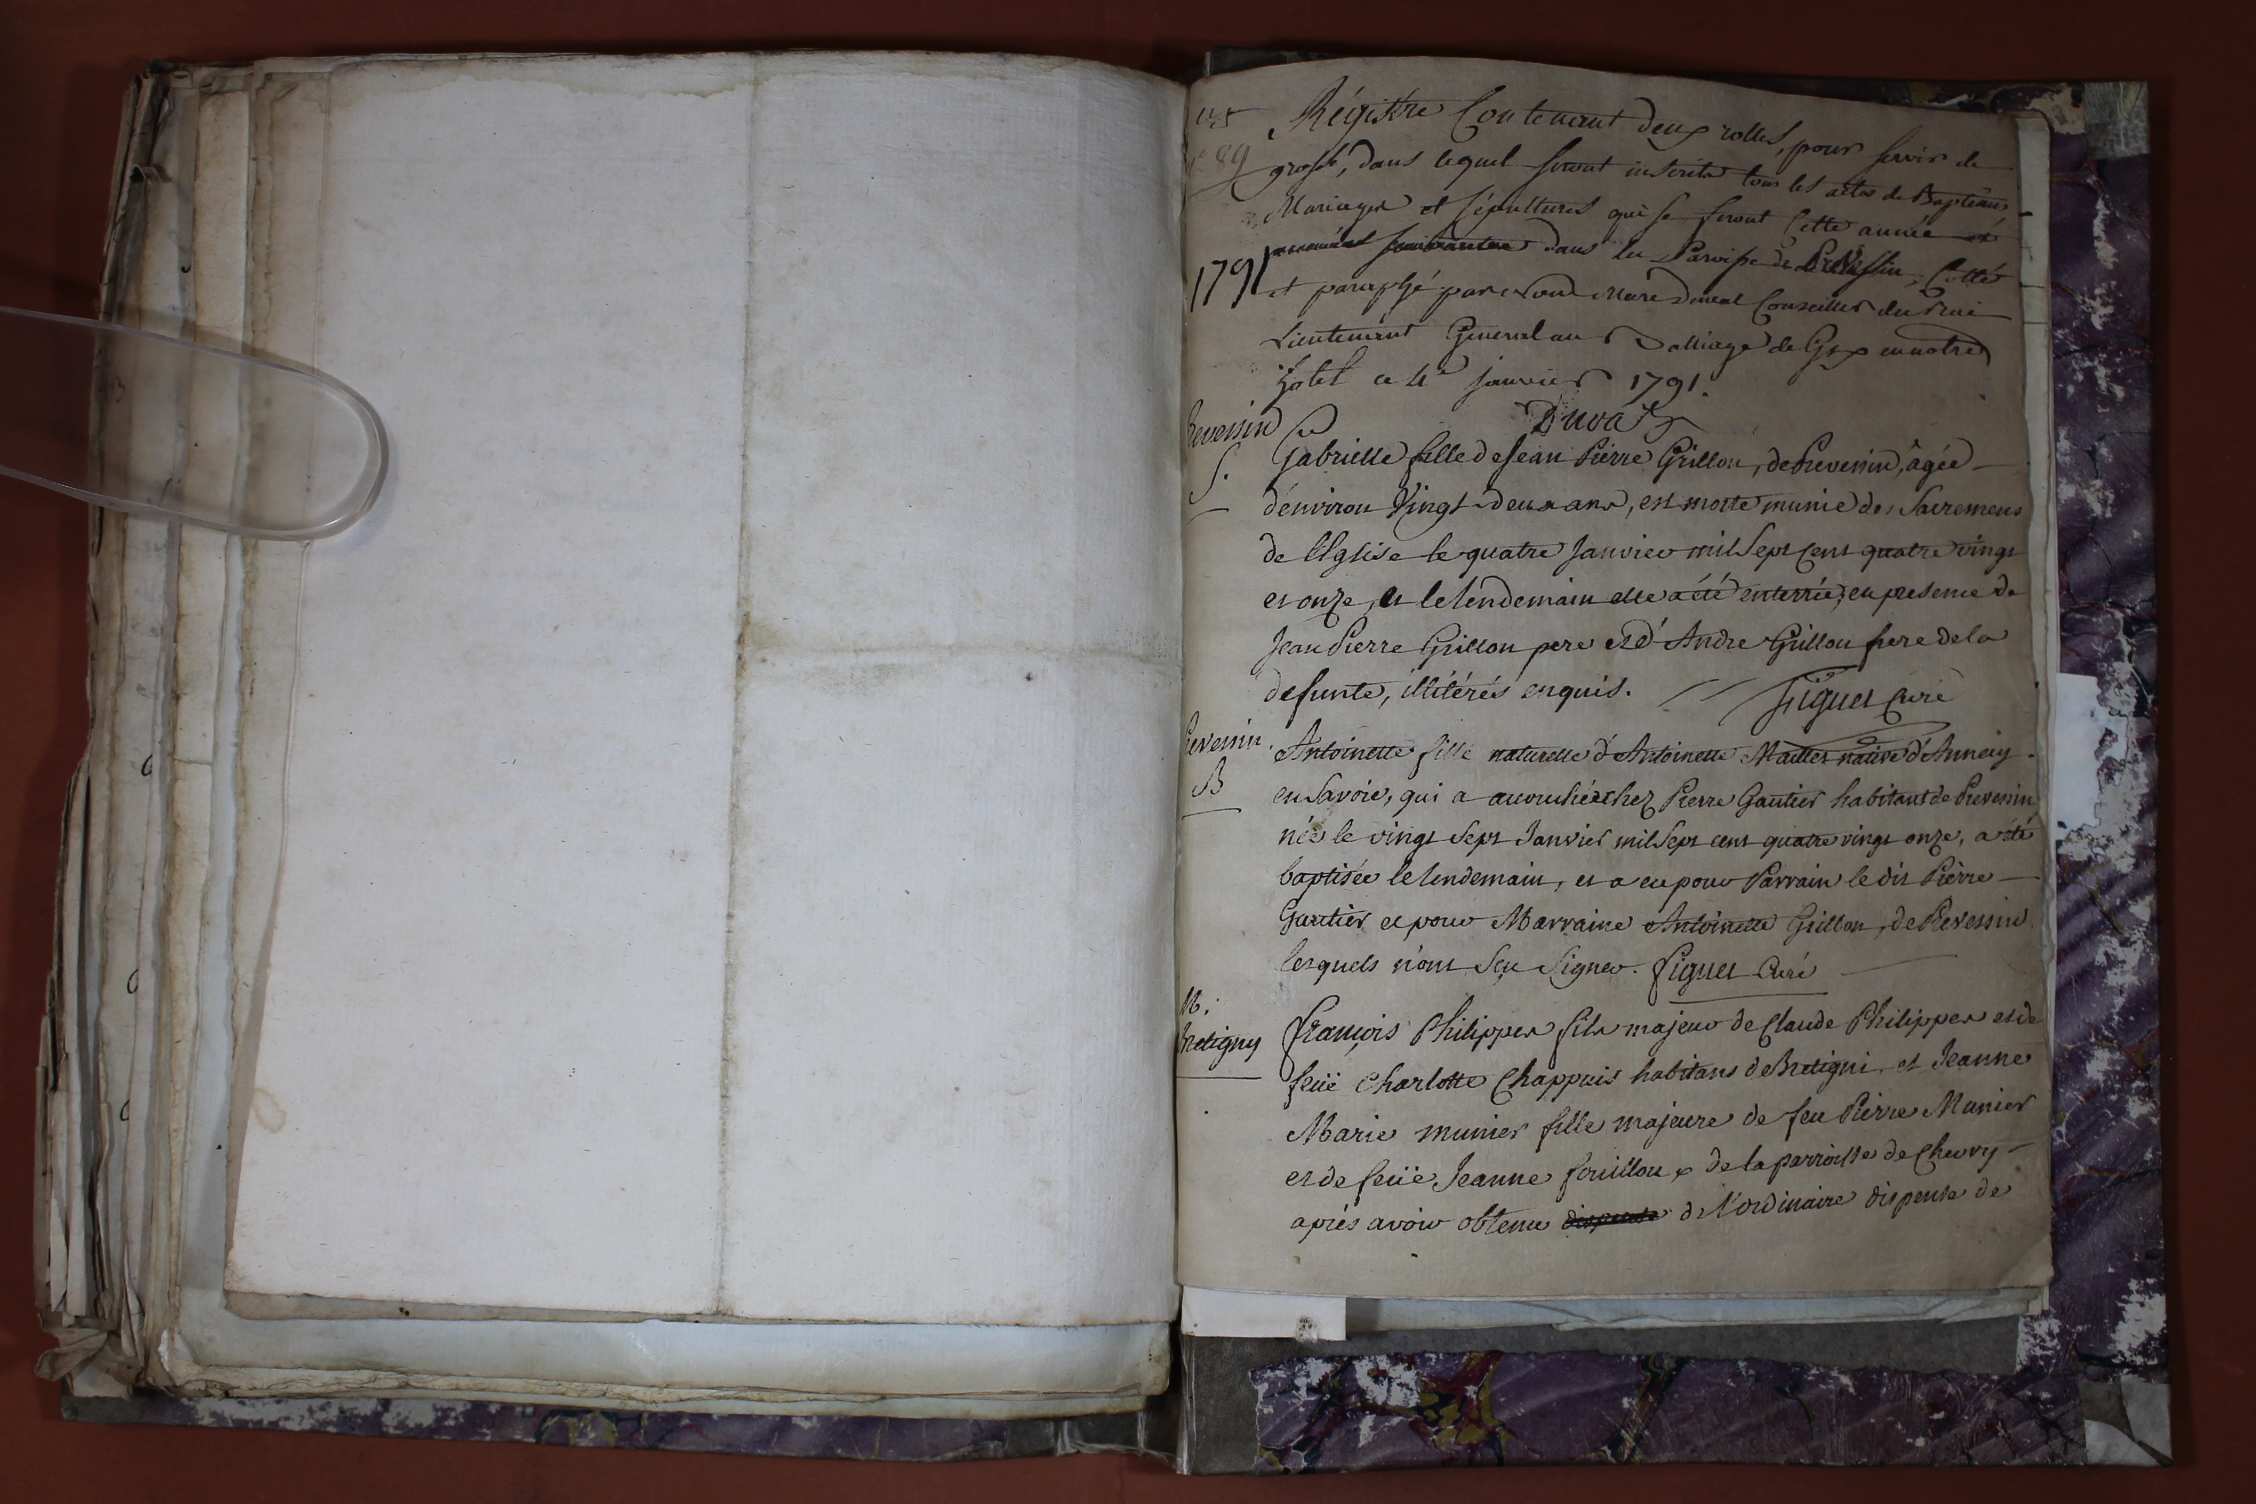 Régistre Contenant deux rolles, pour servir de
grosse, dans lequel seront inscrits tous les actes de Baptêmes
Mariages et sépultures qui se feront Cette année
1791
dans la Paroisse de Prevessin, Cotté
et paraphé par nous Conseiller du Roi
Lieutenant General au Balliage de Gex en notre
hotel ce 4e janvier 1791.
Duval
Prevessin
S.
Gabrielle fille de Jean Pierre Grillon, de Prevessin, âgée
d'environ Vingt-deux ans, est morte munie des Sacremens
de l'Eglise le quatre Janvier mil Sept cent quatre vingt
et onze, et le lendemain elle a été enterrée, en presence de
Jean Pierre Grillon pere et d'Andre Grillon frere de la
defunte, illitérés enquis. Figuet Curé
Prevessin.
B
Antoinette fille naturelle d'Antoinette Maillet native d'Annecy
en Savoie, qui a accouchée chez Pierre Gautier habitant de Prevessin
née le vingt Sept Janvier mil Sept cent quatre vingt onze, a été
baptisée le lendemain, et a eu pour Parrain le dit Pierre
Gautier et pour Marraine Antoinette Grillon, de Prevessin
lesquels n'ont Sçu Signer. Figuet Curé
M.
Bretigny
François Philippes fils majeur de Claude Philippes et de
feüe Charlotte Chappuis habitans de Bretigni, et Jeanne
Marie munier fille majeure de feu Pierre Munier
et de feüe Jeanne fouillou x de la parroisse de Chevry
après avoir obtenu dispense de l'ordinaire dispense de